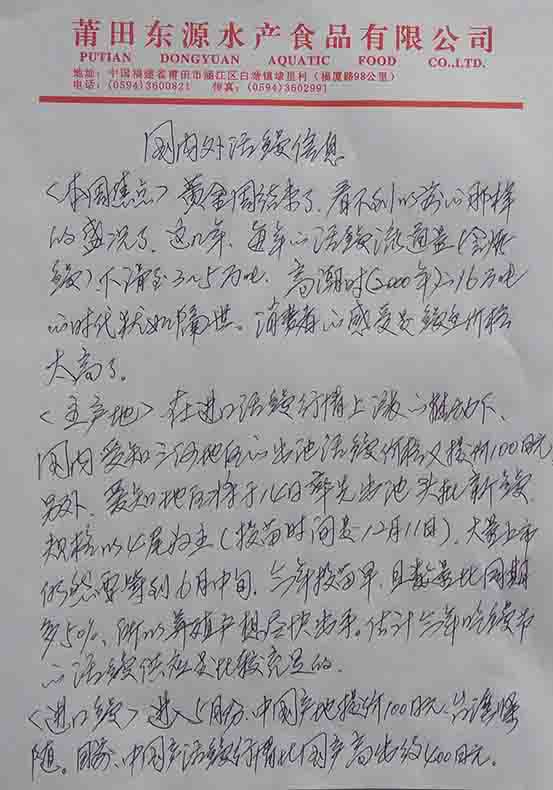 莆田东源水产食品有限公司
PUTIAN DONGYUAN AQUATIC FOOD CO.,LTD.
地址：中国福建省莆田市涵江区白塘镇埭里利（福厦路98公里）
电话：(0594)3600821 传真：(0594)3602991
国内外活鳗信息
<本国焦点> 黄金周结束了，看不到以前的那样
的盛况了。这几年，每年的活鳗流通量(含烤
鳗)下滑至3~5万吨，高潮时(2000年)16万吨
的时代犹如隔世。消费者的感受是鳗鱼价格
太高了。
<主产地> 在进口活鳗行情上涨的推动下、
国内爱知三河地区的出池活鳗价格又提价100日元，
另外，爱知地区将于14日率先出池头批新鳗
规格以4尾为主(投苗时间是12月11日)，大量上市
仍然要等到6月中旬，今年投苗早，且数量比同期
多50%，所以养殖户想尽快出手。估计今年吃鳗节
的活鳗供应是比较充足的。
<进口鳗> 进入5月份，中国产地提价100日元，台湾跟
随。目前，中国产活鳗行情比国产高出约400日元。